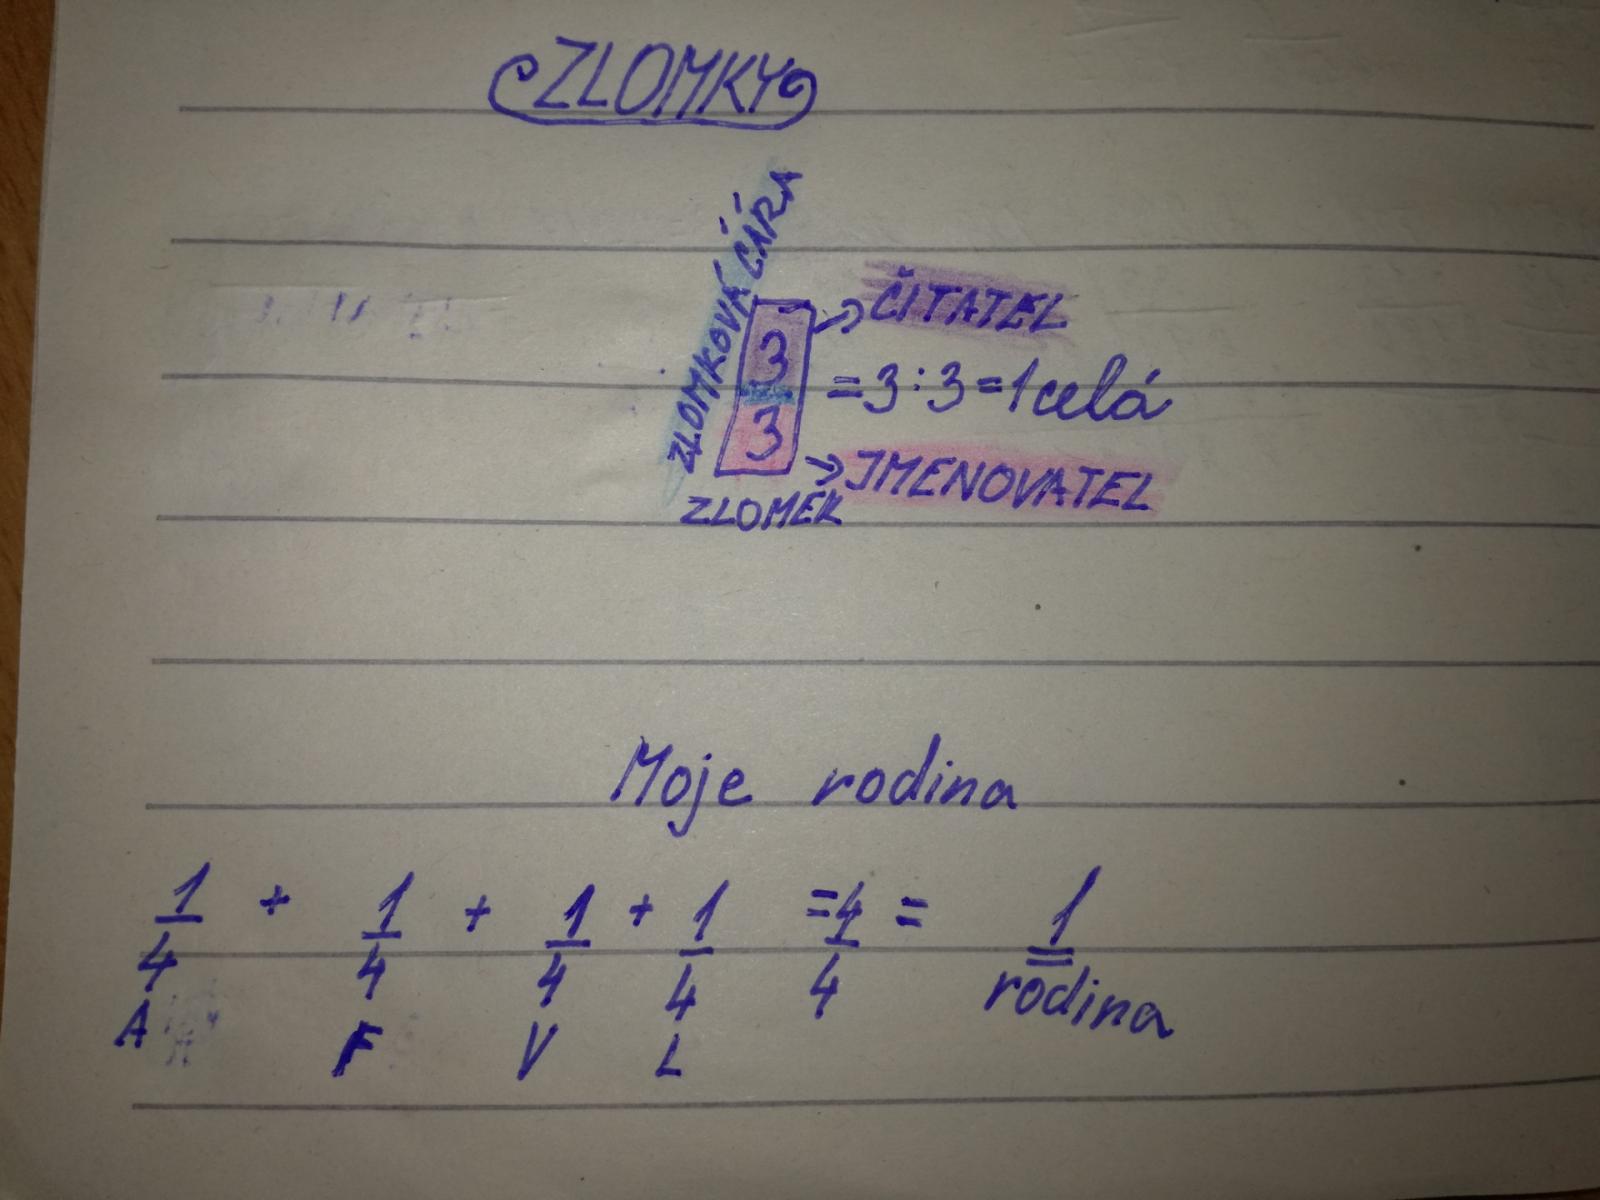 ZLOMKY
ZLOMKOVÁ ČÁRA
3/3 → ČITATEL
= 3 : 3 = 1 celá
→ JMENOVATEL
ZLOMEK
Moje rodina
1/4 + 1/4 + 1/4 + 1/4 = 4/4 = 1
rodina
A F V L